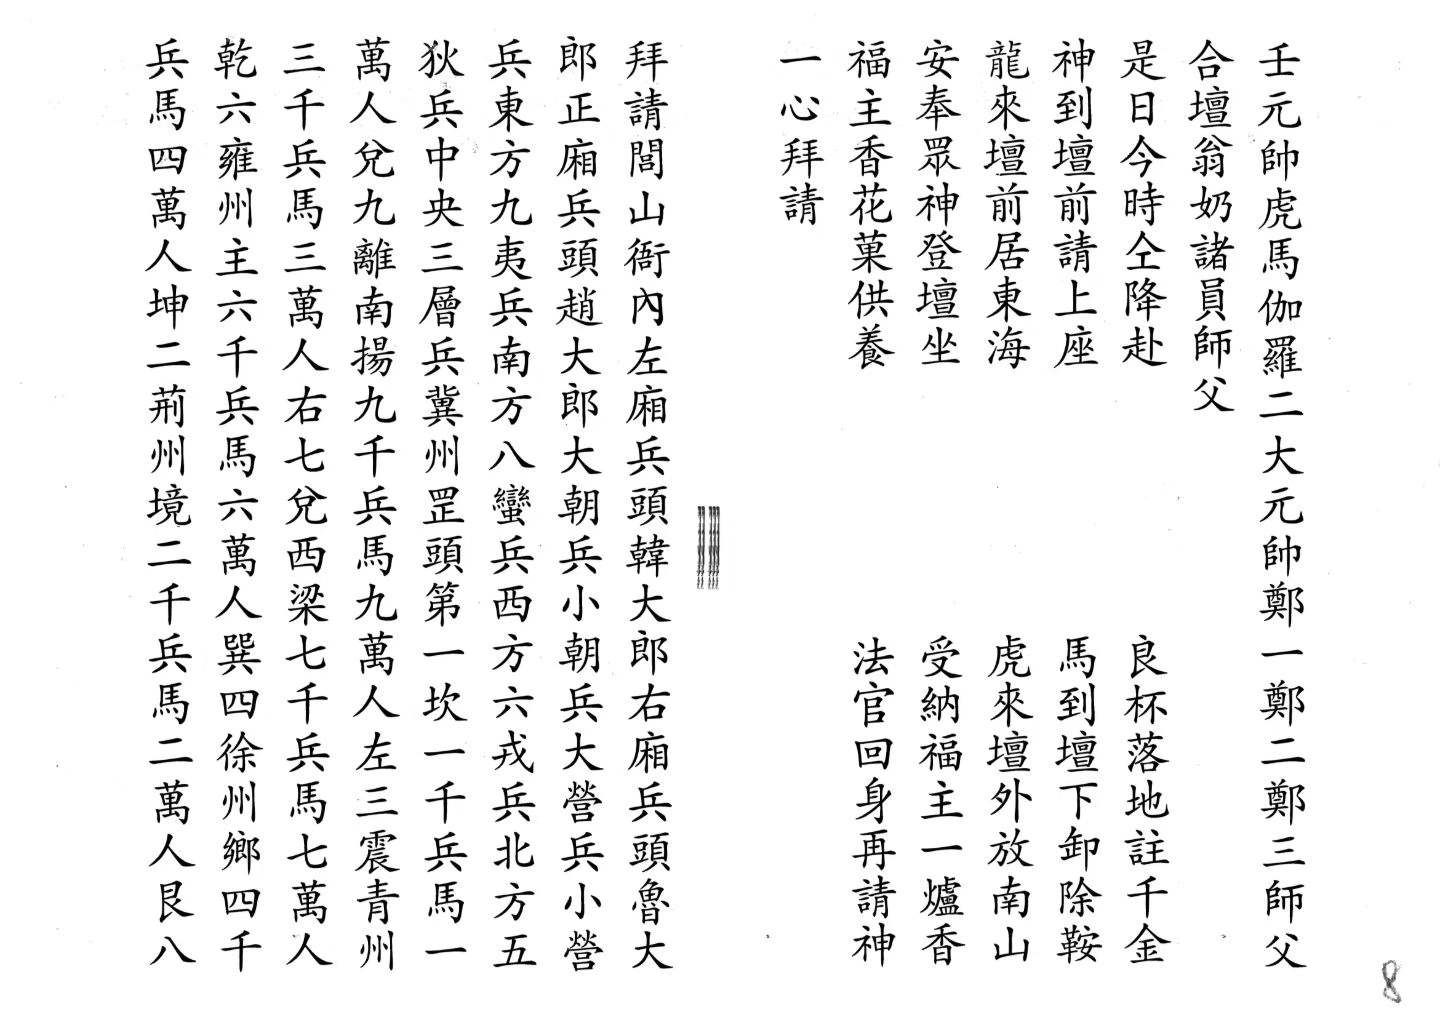 壬元帥虎馬伽羅二大元帥鄭一鄭二鄭三師父
合壇翁奶諸員師父
是日今時仝降赴　良杯落地註千金
神到壇前請上座　馬到壇下卸除鞍
龍來壇前居東海　虎來壇外放南山
安奉眾神登壇坐　受納福主一爐香
福主香花菓供養　法官回身再請神
一心拜請
拜請閭山衙內左廂兵頭韓大郎右廂兵頭魯大
郎正廂兵頭趙大郎大朝兵小朝兵大營兵小營
兵東方九夷兵南方八蠻兵西方六戎兵北方五
狄兵中央三層兵冀州罡頭第一坎一千兵馬一
萬人兌九離南揚九千兵馬九萬人左三震青州
三千兵馬三萬人右七兌西梁七千兵馬七萬人
乾六雍州主六千兵馬六萬人巽四徐州鄉四千
兵馬四萬人坤二荊州境二千兵馬二萬人艮八
8